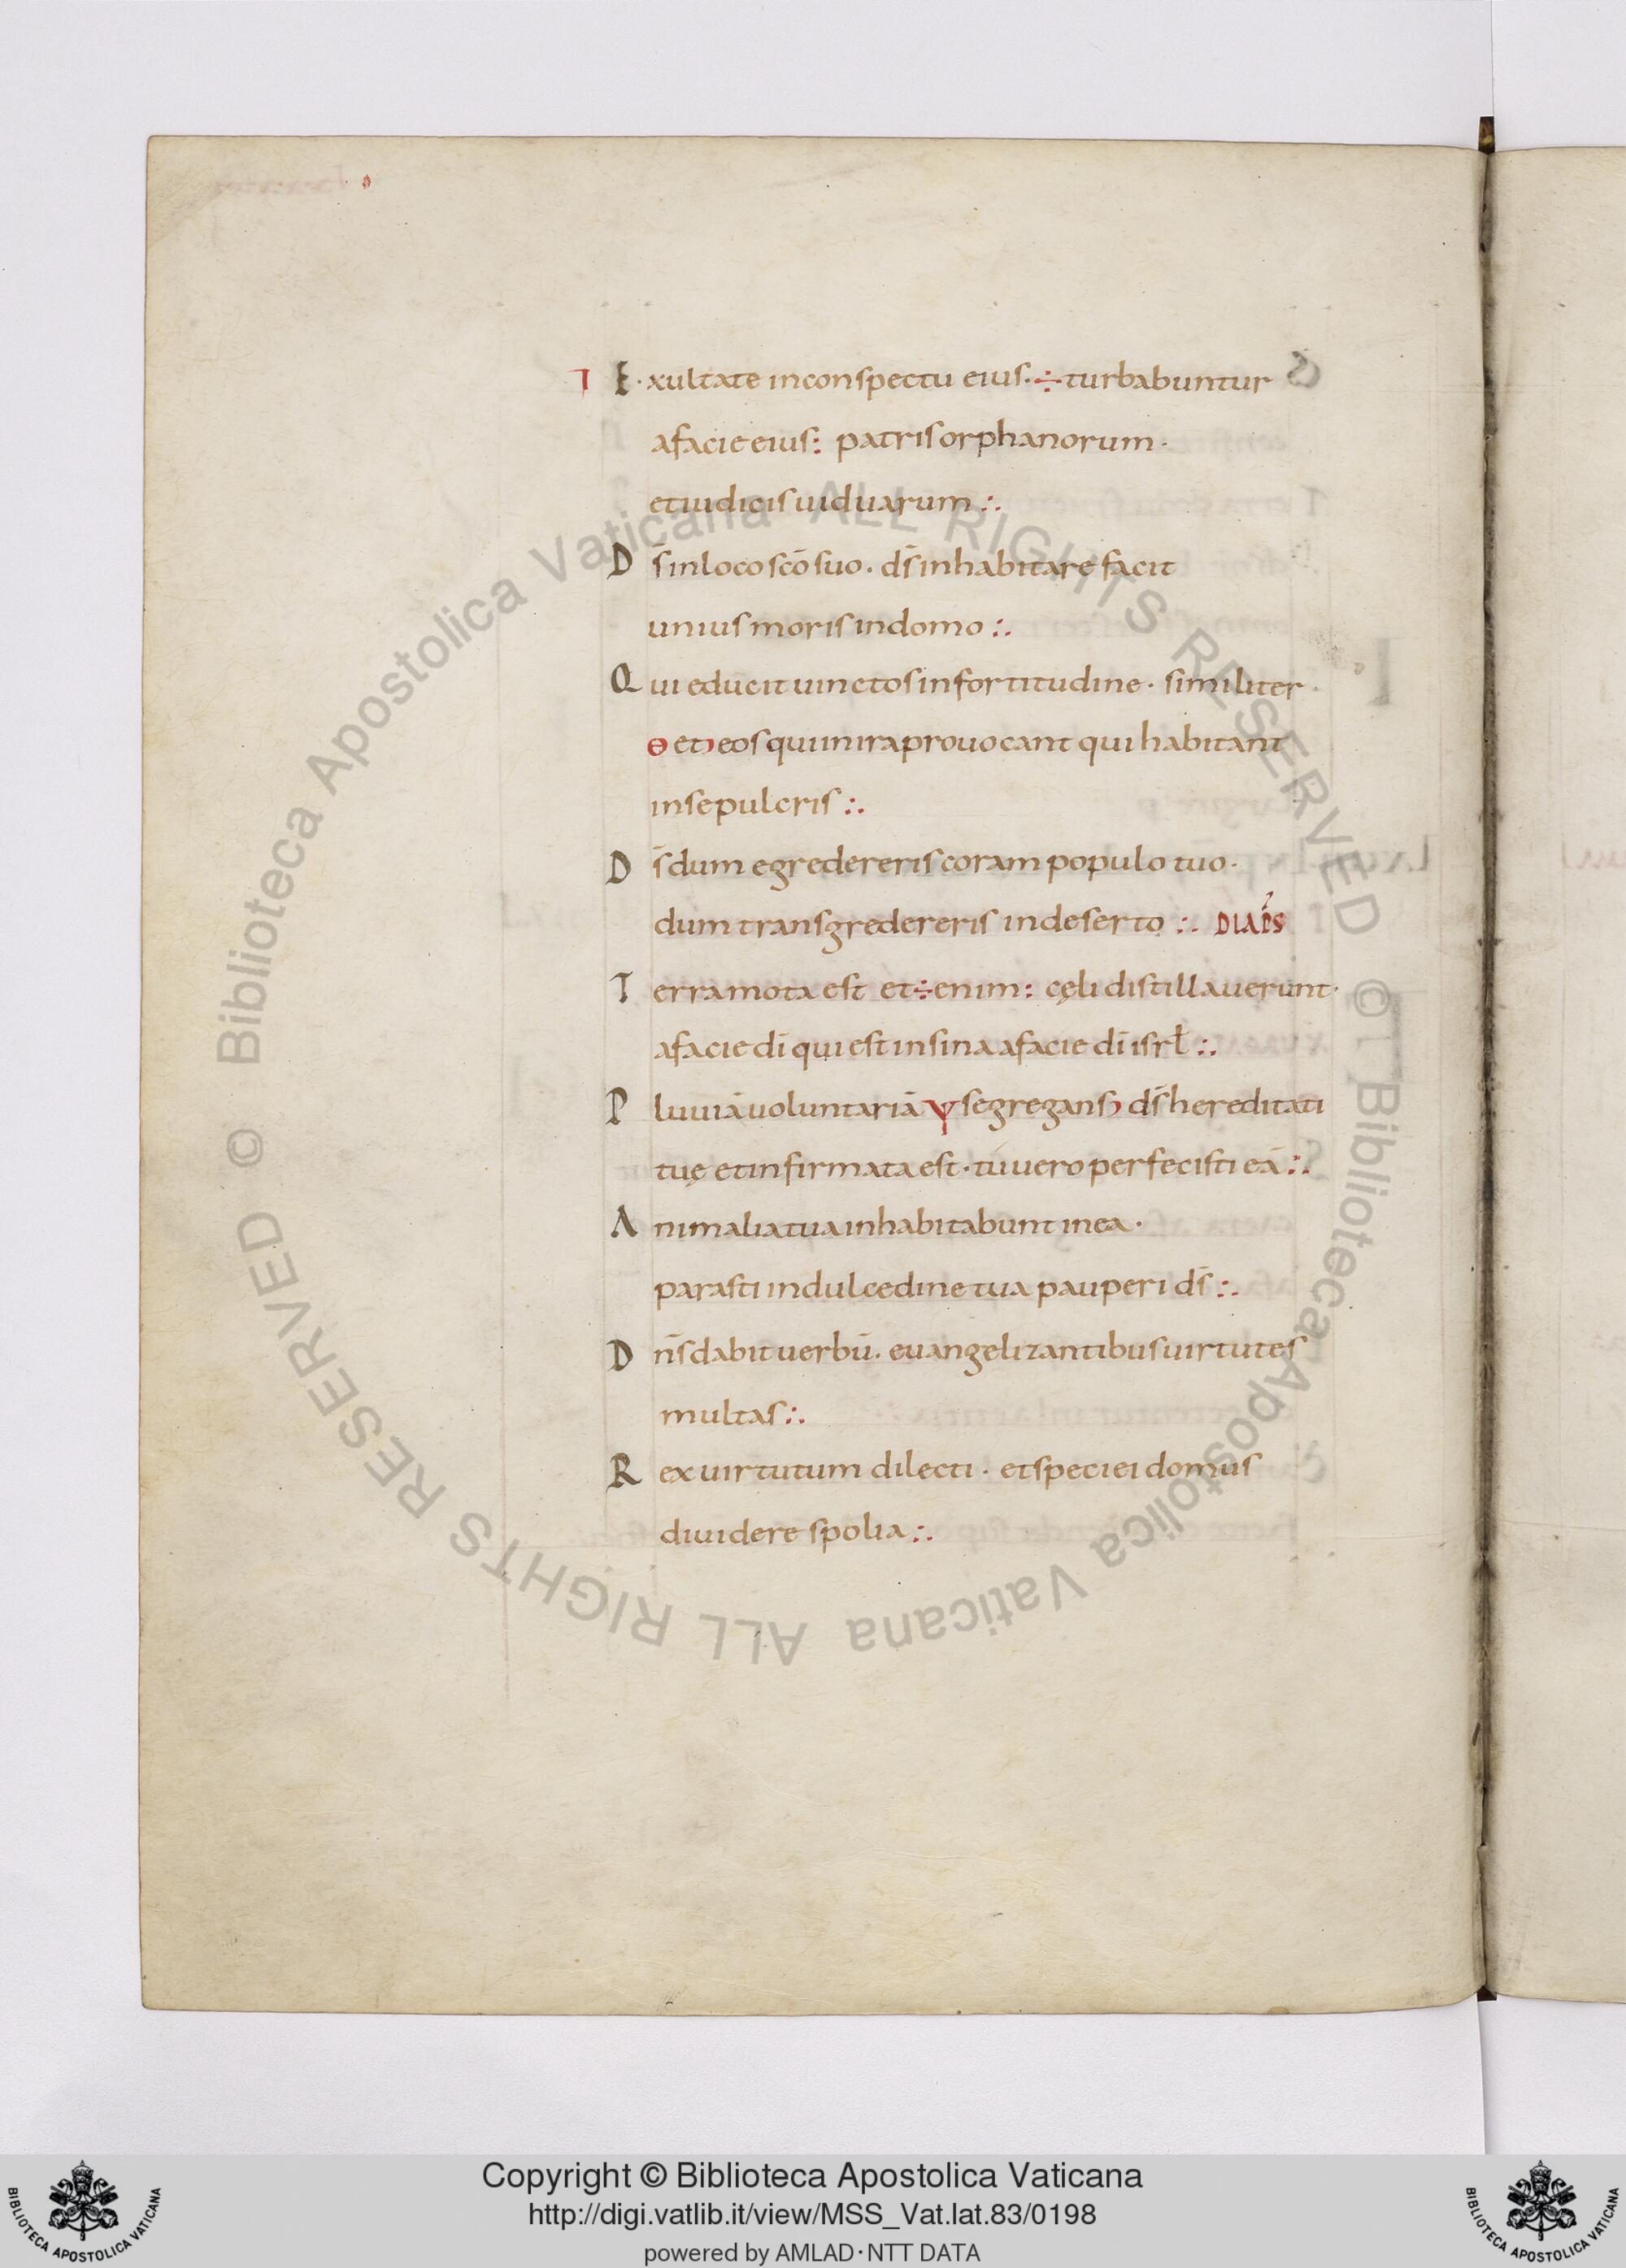 ⁊ E·xultate in conspectu eius·÷turbabuntur
a facie eius: patris orphanorum·
et iudicis uiduarum :.
D s̄ in loco sc̄o suo· ds̄ inhabitare facit
unius moris in domo :.
Q ui educit uinctos in fortitudine· similiter·
ɵ et eos qui in ira prouocant qui habitant
in sepulcris :.
D s̄ dum egredereris coram populo tuo·
dum transgredereris in deserto :. DIAPS
T erra mota est et÷enim: cęli distillauerunt·
a facie dī qui est in sina a facie dī isrł :.
P luuiā uoluntariā ѱ segregans ds̄ hereditati
tuę et infirmata est· tú uero perfecisti eā :.
A nimalia tua inhabitabunt in ea·
parasti in dulcedine tua pauperi ds̄ :.
D n̄s dabit uerbū· euangelizantibus uirtutes
multas :.
R ex uirtutum dilecti· et speciei domus
diuidere spolia :.
© Biblioteca Apostolica Vaticana ALL RIGHTS RESERVED © Biblioteca Apostolica Vaticana ALL RIGHTS RESERVED
Copyright © Biblioteca Apostolica Vaticana
http://digi.vatlib.it/view/MSS_Vat.lat.83/0198
powered by AMLAD·NTT DATA
BIBLIOTECA APOSTOLICA VATICANA
BIBLIOTECA APOSTOLICA VATICANA